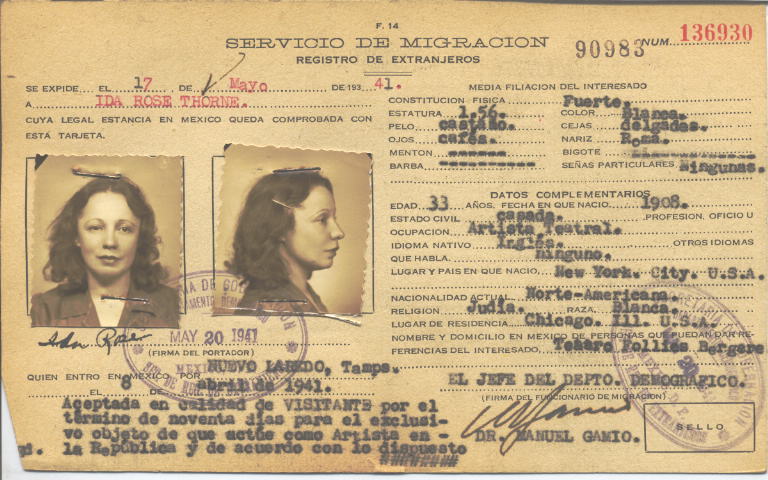 F. 14
SERVICIO DE MIGRACION
REGISTRO DE EXTRANJEROS
90983
NUM. 136930
SE EXPIDE EL 17 DE Mayo DE 193 41.
A IDA ROSE THORNE.
CUYA LEGAL ESTANCIA EN MEXICO QUEDA COMPROBADA CON
ESTA TARJETA.
MAY 20 1941
(FIRMA DEL PORTADOR)
NUEVO LAREDO, Tamps.
QUIEN ENTRO EN MEXICO POR
EL 8 DE abril de 1941.
Aceptada en calidad de VISITANTE por el
término de noventa días para el exclusi-
vo objeto de que actúe como Artista en -
la República y de acuerdo con lo dispuesto
MEDIA FILIACION DEL INTERESADO
CONSTITUCION FISICA Fuerte.
ESTATURA 1.56. COLOR Blanca.
PELO castaño. CEJAS delgadas.
OJOS cafés. NARIZ Roma.
MENTON BIGOTE
BARBA SEÑAS PARTICULARES Ningunas.
DATOS COMPLEMENTARIOS
EDAD 33 AÑOS. FECHA EN QUE NACIO. 1908.
ESTADO CIVIL casada. PROFESION, OFICIO U
OCUPACION Artista Teatral.
IDIOMA NATIVO Inglés. OTROS IDIOMAS
QUE HABLA. ninguno.
LUGAR Y PAIS EN QUE NACIO, New York. City. U.S.A.
NACIONALIDAD ACTUAL Norte-Americana.
RELIGION Judía. RAZA Blanca.
LUGAR DE RESIDENCIA Chicago. Ill. U.S.A.
NOMBRE Y DOMICILIO EN MEXICO DE PERSONAS QUE PUEDAN DAR RE-
FERENCIAS DEL INTERESADO. Follies Bergere
EL JEFE DEL DEPTO. DEMOGRAFICO.
(FIRMA DEL FUNCIONARIO DE MIGRACION)
DR. MANUEL GAMIO.
SELLO